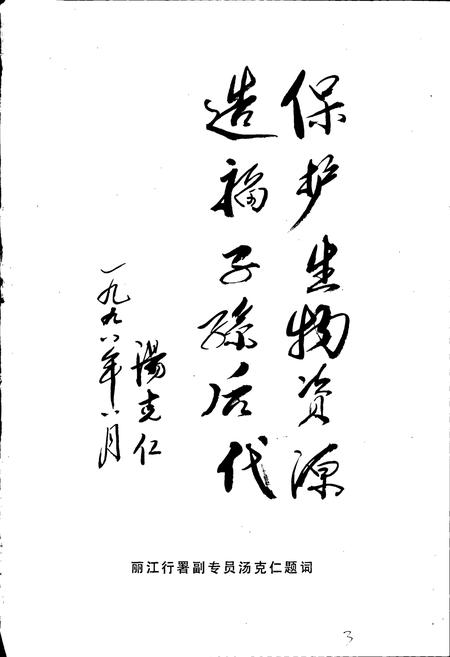 保护生物资源
造福子孫后代
湯克仁
一九九八年八月
丽江行署副专员汤克仁题词
3